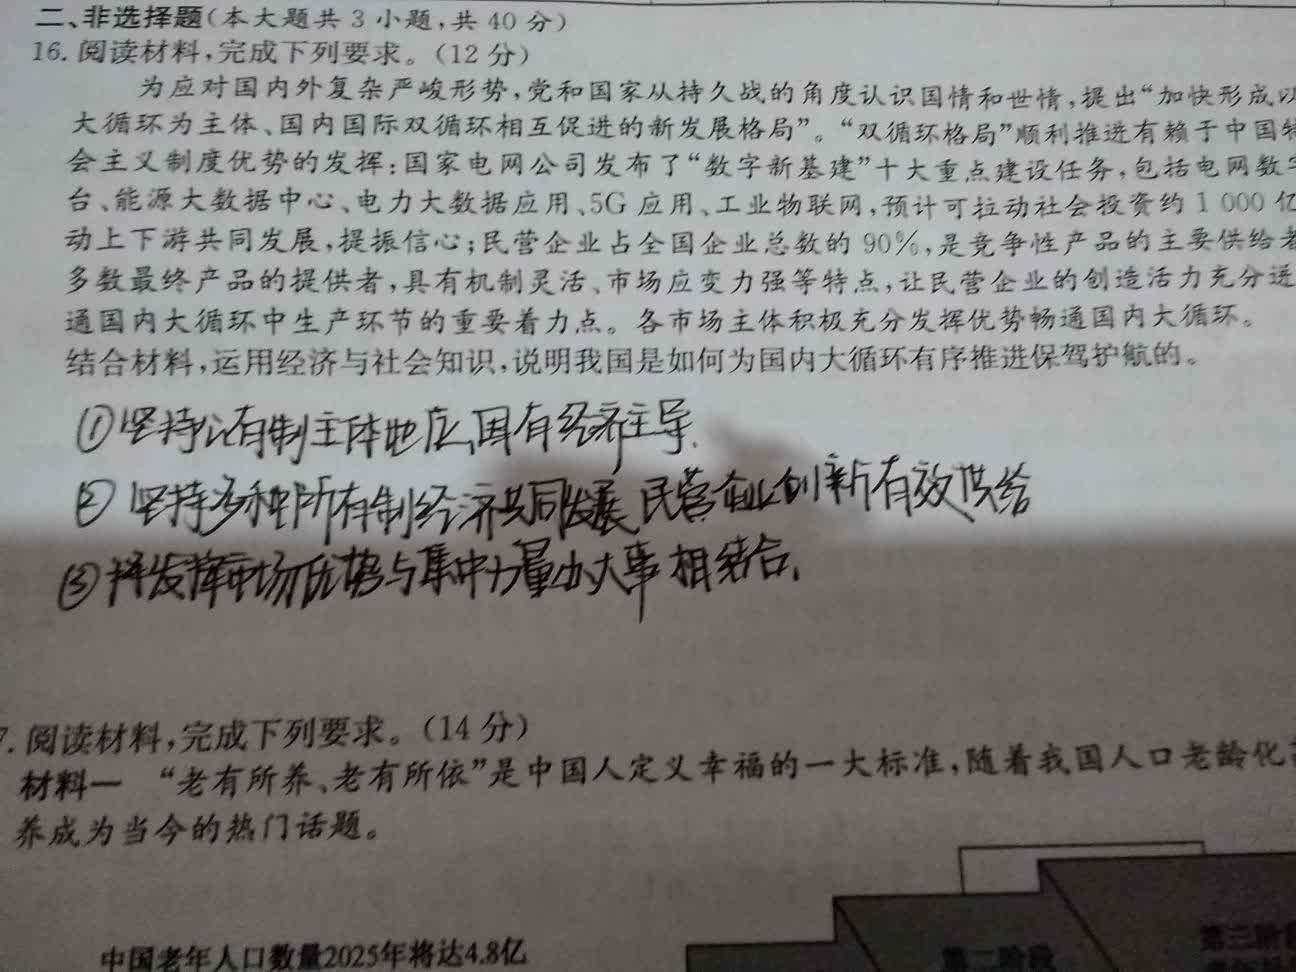 二、非选择题(本大题共 3 小题,共 40 分)
16. 阅读材料,完成下列要求。(12 分)
为应对国内外复杂严峻形势,党和国家从持久战的角度认识国情和世情,提出“加快形成以
大循环为主体、国内国际双循环相互促进的新发展格局”。“双循环格局”顺利推进有赖于中国特
会主义制度优势的发挥:国家电网公司发布了“数字新基建”十大重点建设任务,包括电网数字
台、能源大数据中心、电力大数据应用、5G 应用、工业物联网,预计可拉动社会投资约 1 000 亿
动上下游共同发展,提振信心;民营企业占全国企业总数的 90%,是竞争性产品的主要供给者
多数最终产品的提供者,具有机制灵活、市场应变力强等特点,让民营企业的创造活力充分迸
通国内大循环中生产环节的重要着力点。各市场主体积极充分发挥优势畅通国内大循环。
结合材料,运用经济与社会知识,说明我国是如何为国内大循环有序推进保驾护航的。
①坚持公有制主体地位,国有经济主导.
② 坚持多种所有制经济共同发展 民营企业创新有效供给
③将发挥市场优势与集中力量办大事相结合.
7. 阅读材料,完成下列要求。(14 分)
材料一 “老有所养、老有所依”是中国人定义幸福的一大标准,随着我国人口老龄化
养成为当今的热门话题。
中国老年人口数量2025年将达4.8亿
第二阶段
第三阶